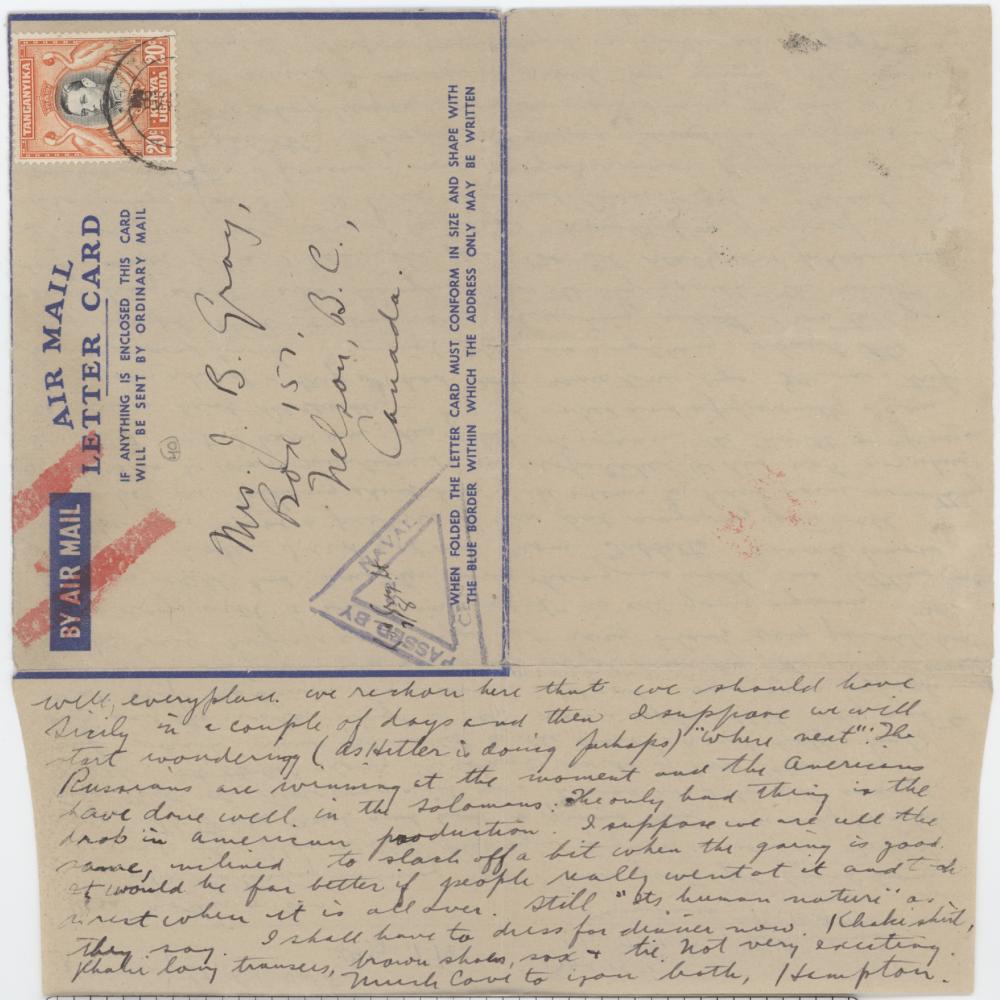 TANGANYIKA
KENYA
UGANDA
20c
20c
AIR MAIL
LETTER CARD
IF ANYTHING IS ENCLOSED THIS CARD
WILL BE SENT BY ORDINARY MAIL
BY AIR MAIL
40
Mrs. J. B. Gray,
Box 157,
Nelson, B.C.,
Canada.
PASSED BY
NAVAL
WHEN FOLDED THE LETTER CARD MUST CONFORM IN SIZE AND SHAPE WITH
THE BLUE BORDER WITHIN WHICH THE ADDRESS ONLY MAY BE WRITTEN
well, everyplace. we reckon here that we should have
Sicily in a couple of days and then I suppose we will
start wondering (as Hitler is doing perhaps) "where next". The
Russians are winning at the moment and the Americans
have done well in the Solomons. The only bad thing is the
drop in american production. I suppose we are all the
same, inclined to slack off a bit when the going is good.
It would be far better if people really went at it and
rest when it is all over. Still "its human nature" as
they say. I shall have to dress for dinner now. Khaki shirt,
Khaki long trousers, brown shoes, sox + tie. Not very exciting.
Much Love to you both, Hampton.